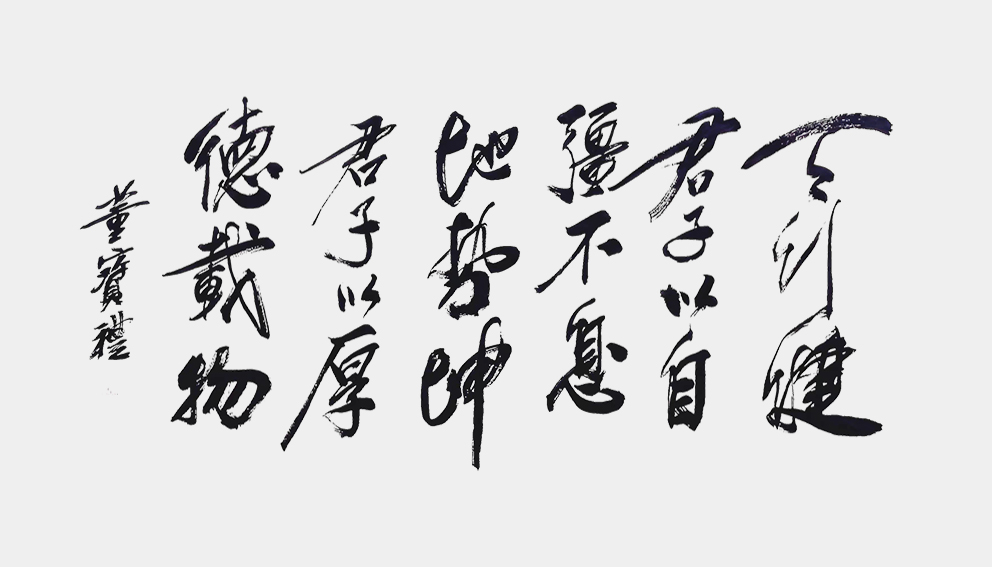 天行健
君子以自
彊不息
地势坤
君子以厚
德載物
董寶禮